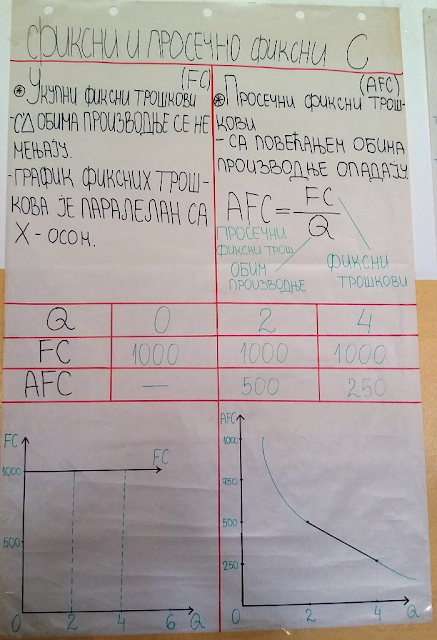 ФИКСНИ И ПРОСЕЧНО ФИКСНИ С
(FC)
УКУПНИ ФИКСНИ ТРОШКОВИ
-СА △ ОБИМА ПРОИЗВОДЊЕ СЕ НЕ
МЕЊАЈУ.
-ГРАФИК ФИКСНИХ ТРОШ-
КОВА ЈЕ ПАРАЛЕЛАН СА
X - ОСОМ.
(AFC)
ПРОСЕЧНИ ФИКСНИ ТРОШ-
КОВИ
- СА ПОВЕЋАЊЕМ ОБИМА
ПРОИЗВОДЊЕ ОПАДАЈУ.
AFC = FC
Q
ПРОСЕЧНИ
ФИКСНИ ТРОШ.
ОБИМ
ПРОИЗВОДЊЕ
ФИКСНИ
ТРОШКОВИ
Q 0 2 4
FC 1000 1000 1000
AFC — 500 250
FC
1000
FC
500
0 2 4 6 Q
AFC
1000
750
500
250
0 2 4 Q